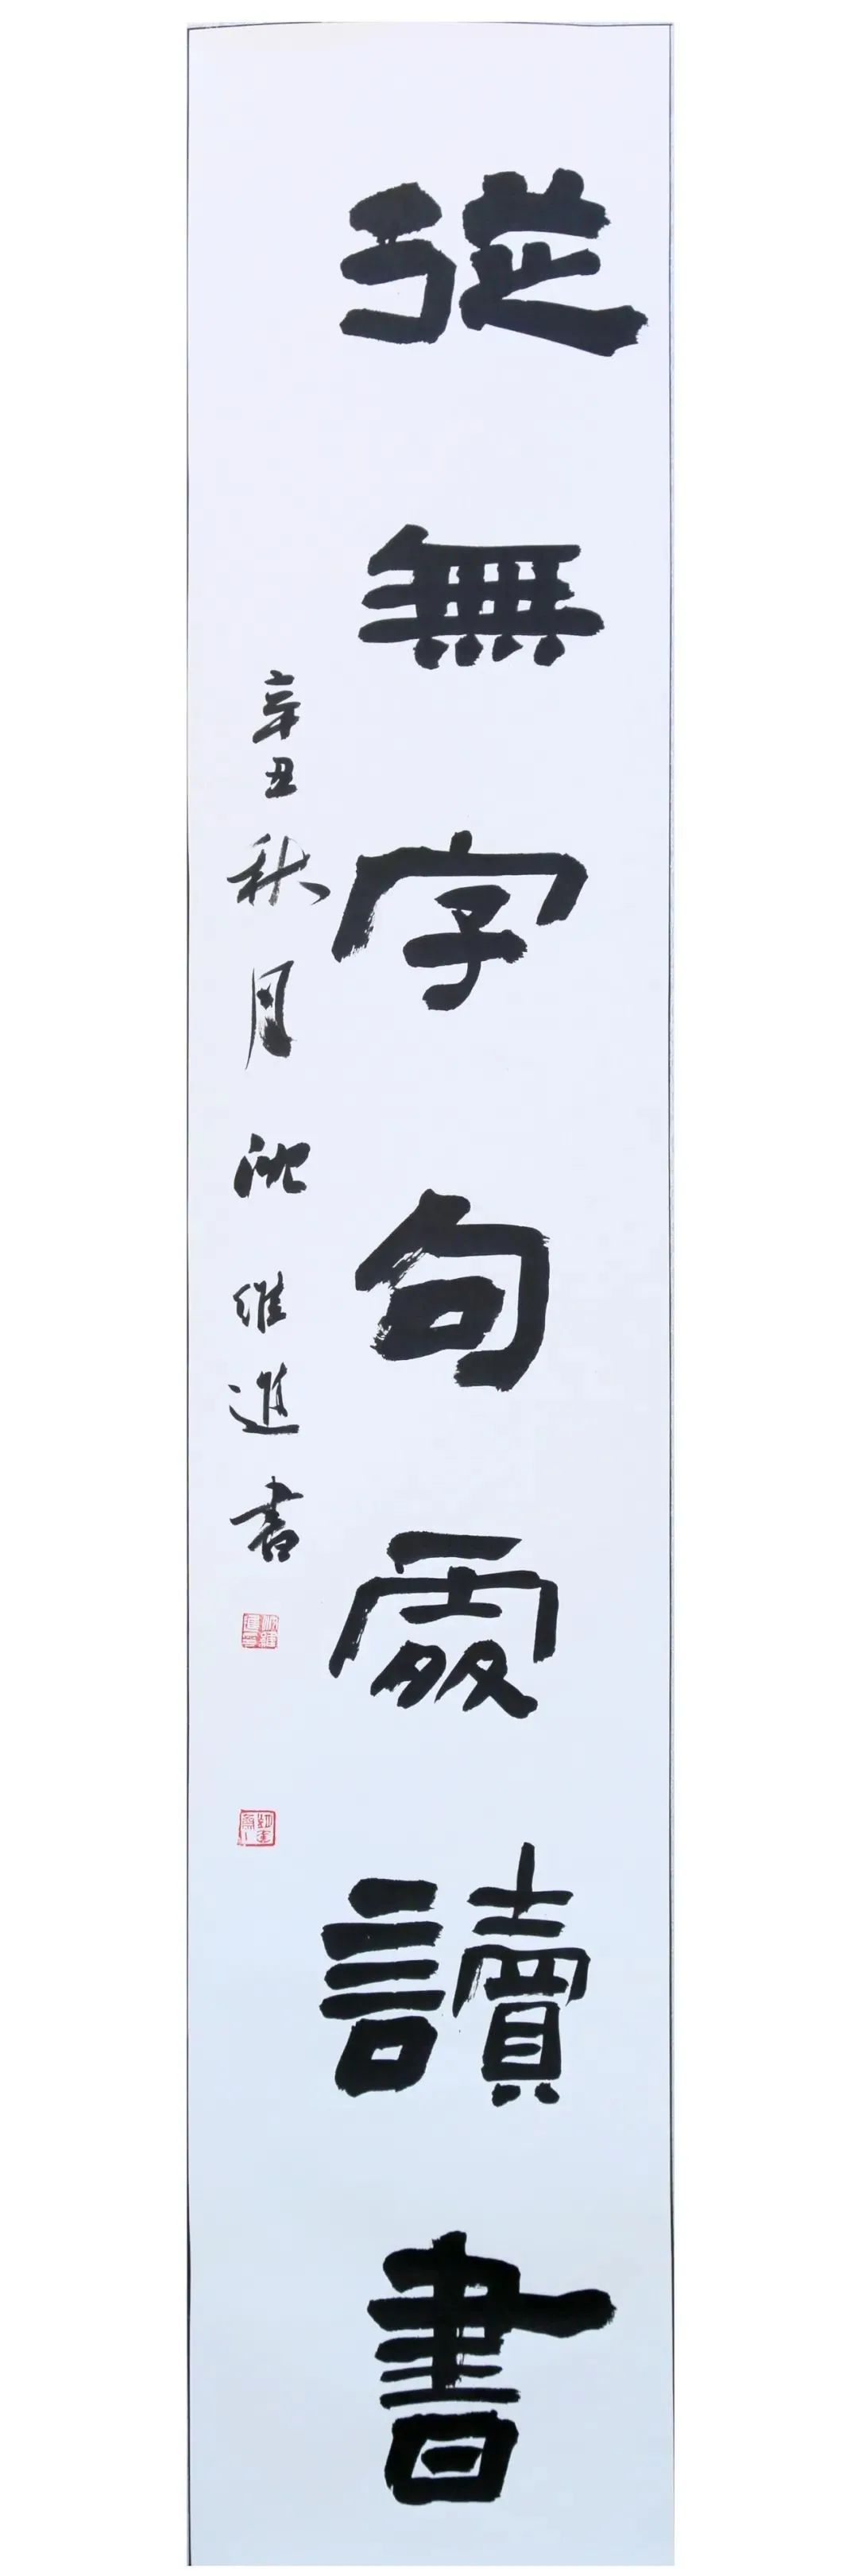 從無字句處讀書
辛丑秋月沈維進書